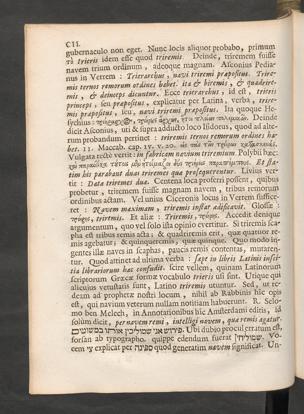 CII.
gubernaculo non eget. Nunc locis aliquot probabo, primum
τὸ trieris idem esse quod triremis. Deinde, triremem fuisse
navem trium ordinum, adeoque magnam. Asconius Pedia-
nus in Verrem: Trierarchus, navi triremi præpositus. Trire-
mis ternos remorum ordines habet. ita & biremis, & quadrire-
mis, & deinceps dicuntur. Ecce trierarchus, id est, trieris
princeps, seu præpositus, explicatur per Latina, verba, trire-
mis præpositus, seu, navi triremi præpositus. Ita quoque He-
sychius: Deinde
dicit Asconius, uti & supra adducto loco Isidorus, quod ad alte-
rum probandum pertinet: triremis ternos remorum ordines ha-
bet. II. Maccab. cap. IV. v. 20.
Vulgata recte vertit: in fabricam navium triremium. Polybii hæc:
Et sta-
tim his parabant duas triremes quæ prosequerentur. Livius ver-
tit: Data triremes duæ. Centena loca proferri possent, quibus
probetur, triremem fuisse magnam navem, tribus remorum
ordinibus actam. Vel unius Ciceronis locus in Verrem suffice-
ret: Navem maximam, triremis instar ædificavit. Glossæ:
τριήρης, triremis. Et aliæ: Triremis, τριήρης. Accedit denique
argumentum, quo vel solo ista opinio evertitur. Si trieris sca-
pha est tribus remis acta; & quadriremis erit, quæ quatuor re-
mis agebatur; & quinqueremis, quæ quinque. Quo modo in-
gentes illæ naves in scaphas, paucis remis contentas, mutaren-
tur. Quod attinet ad ultima verba: sæpe in libris Latinis insci-
tia librariorum hæc confudit. Scire vellem, quinam Latinorum
scriptorum Græcæ formæ vocabulo trieris usi sint. Utique qui
alicujus vetustatis sunt, Latino triremis utuntur. Sed, ut re-
deam ad prophetæ nostri locum, nihil ab Rabbinis hic opis
est, qui navium veterum nullam notitiam habuerunt. R. Selo-
mo ben Melech, in Annotationibus hic Amsterdami editis, id
solum dicit, per navem remi, intelligi navem, quæ remis agatur.
Ubi dubio procul erratum est,
forsan ab typographo. quippe edendum fuerat Vo-
cem צי explicat per ספינה quod generatim navem significat. Un-